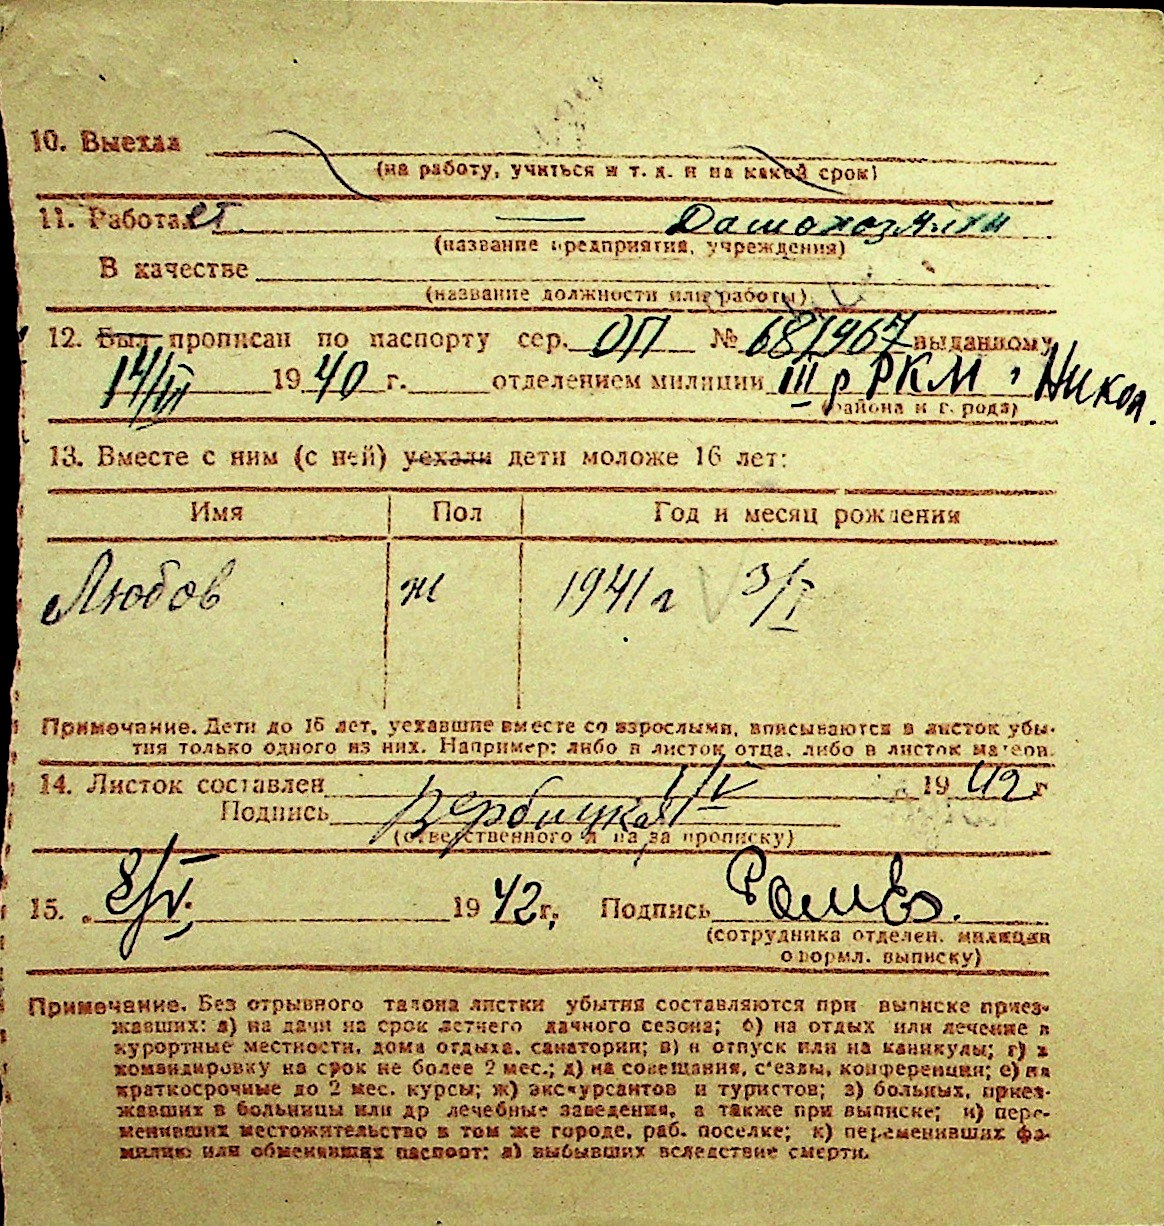 10. Выехал
(на работу, учиться и т. д. и на какой срок)
11. Работает — Домохозяйка
(название предприятия, учреждения)
В качестве
(название должности или работы)
12. Был прописан по паспорту сер. ОП № 687967 выданному
14/VI 1940 г. отделением милиции III р РКМ г Никол.
(района и города)
13. Вместе с ним (с ней) уехали дети моложе 16 лет:
Имя Пол Год и месяц рождения
Любов ж 1941 г 3/I
Примечание. Дети до 16 лет, уехавшие вместе со взрослыми, вписываются в листок убы-
тия только одного из них. Например: либо в листок отца, либо в листок матери.
14. Листок составлен 1/V 1942 г
Подпись Вербицкая
(ответственного лица за прописку)
15. 8/V. 1942 г. Подпись
(сотрудника отделен. милиции
оформл. выписку)
Примечание. Без отрывного талона листки убытия составляются при выписке приез-
жавших: а) на дачи на срок летнего дачного сезона; б) на отдых или лечение в
курортные местности, дома отдыха, санатории; в) в отпуск или на каникулы; г) в
командировку на срок не более 2 мес.; д) на совещания, с'езды, конференции; е) на
краткосрочные до 2 мес. курсы; ж) экскурсантов и туристов; з) больных, приез-
жавших в больницы или др лечебные заведения, а также при выписке; и) пере-
менивших местожительство в том же городе, раб. поселке; к) переменивших фа-
милию или обменявших паспорт; л) выбывших вследствие смерти.